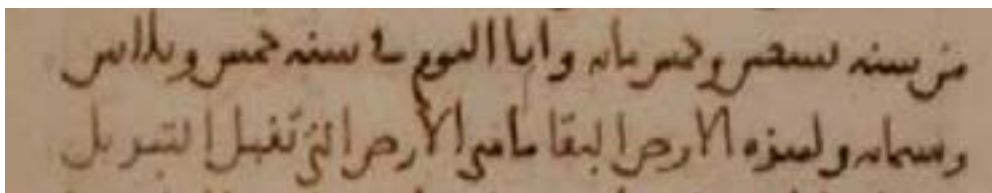 من سنه تسعين وخمس مايه وانا اليوم في سنه خمس وثلاثين
وستمايه ولهذه الارض البقا ما هي الارض التي تقبل التبديل